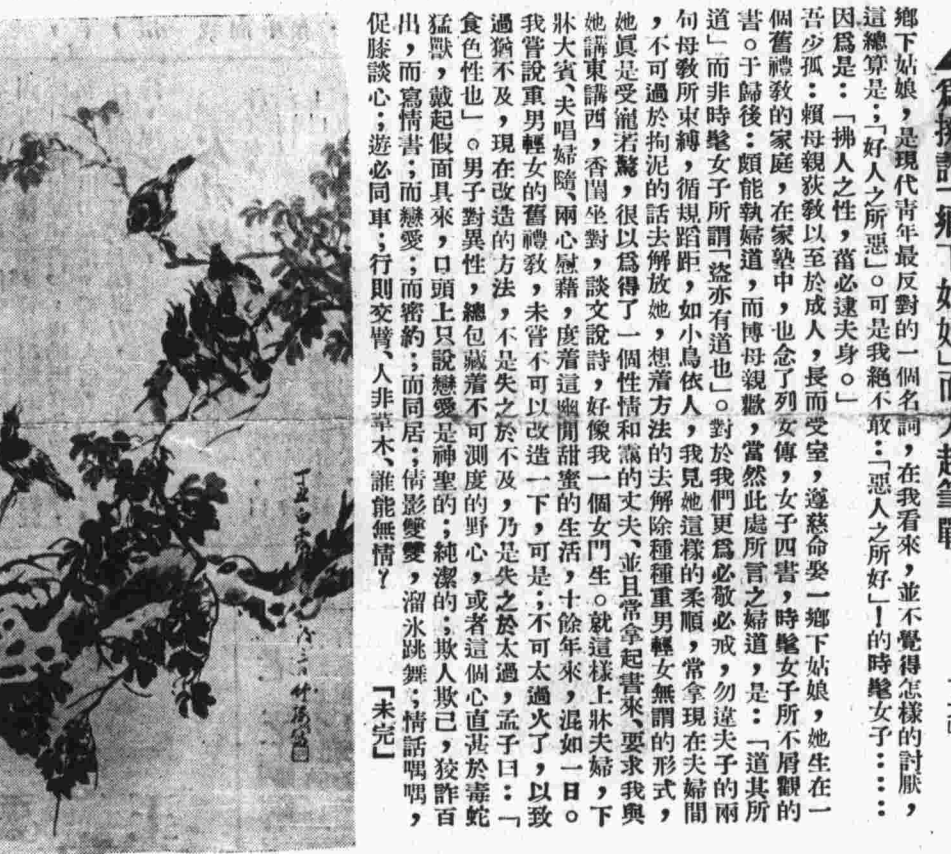 鄉下姑娘，是現代靑年最反對的一個名詞，在我看來，並不覺得怎樣的討厭，
這總算是；「好人之所惡」。可是我絕不敢：「惡人之所好」！的時髦女子……
因爲是：「拂人之性，菑必逮夫身。」
吾少孤：賴母親荻敎以至於成人，長而受室，遵慈命娶一鄉下姑娘，她生在一
個舊禮敎的家庭，在家塾中，也念了列女傳，女子四書，時髦女子所不屑觀的
書。于歸後：頗能執婦道，而博母親歡，當然此處所言之婦道，是：「道其所
道」而非時髦女子所謂「盜亦有道也」。對於我們更爲必敬必戒，勿違夫子的兩
句母敎所束縛，循規蹈距，如小鳥依人，我見她這樣的柔順，常拿現在夫婦間
，不可過於拘泥的話去解放她，想着方法的去解除種種重男輕女無謂的形式，
她眞是受寵若驚，很以爲得了一個性情和藹的丈夫、並且常拿起書來、要求我與
她講東講西，香閨坐對，談文說詩，好像我一個女門生。就這樣上牀夫婦，下
牀大賓、夫唱婦隨、兩心慰藉，度着這幽閒甜蜜的生活，十餘年來，混如一日。
我嘗說重男輕女的舊禮敎，未嘗不可以改造一下，可是；不可太過火了，以致
過猶不及，現在改造的方法，不是失之於不及，乃是失之於太過，孟子曰：「
食色性也」。男子對異性，總包藏着不可測度的野心，或者這個心直甚於毒蛇
猛獸，戴起假面具來，口頭上只說戀愛是神聖的；純潔的；欺人欺己，狡詐百
出，而寫情書；而戀愛；而密約；而同居；倩影雙雙，溜氷跳舞；情話喁喁，
促膝談心；遊必同車；行則交臂、人非草木、誰能無情？
「未完」
丁丑白露